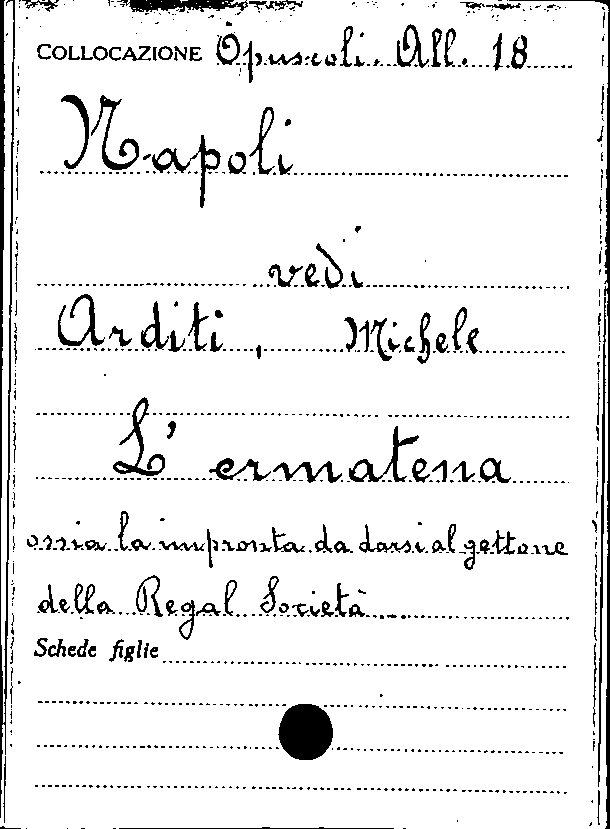 COLLOCAZIONE Opuscoli. All. 18
Napoli
vedi
Arditi, Michele
L' ermatena
ossia la impronta da darsi al gettone
della Regal Società...
Schede figlie